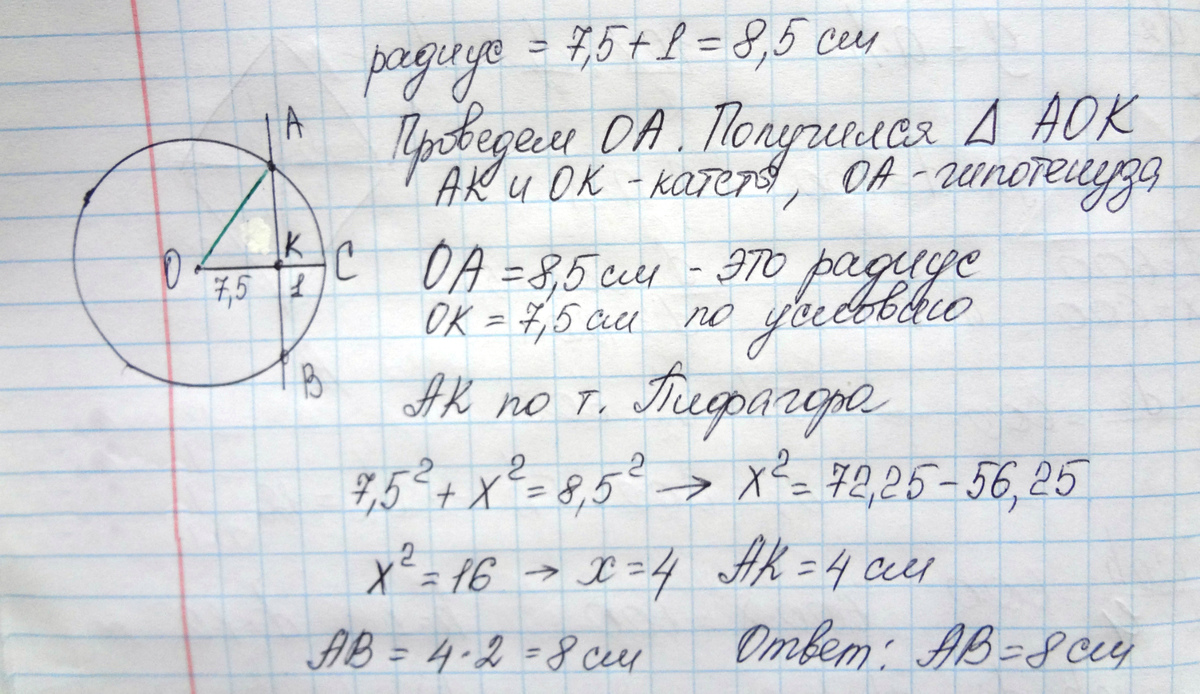 радиус = 7,5 + 1 = 8,5 см
A
Проведем OA. Получился Δ AOK
AK и OK - катеты, OA - гипотенуза
O
7,5
K
1
C
OA = 8,5 см - это радиус
OK = 7,5 см по условию
B
AK по т. Пифагора
7,5² + x² = 8,5² → x² = 72,25 - 56,25
x² = 16 → x = 4 AK = 4 см
AB = 4 · 2 = 8 см Ответ: AB = 8 см